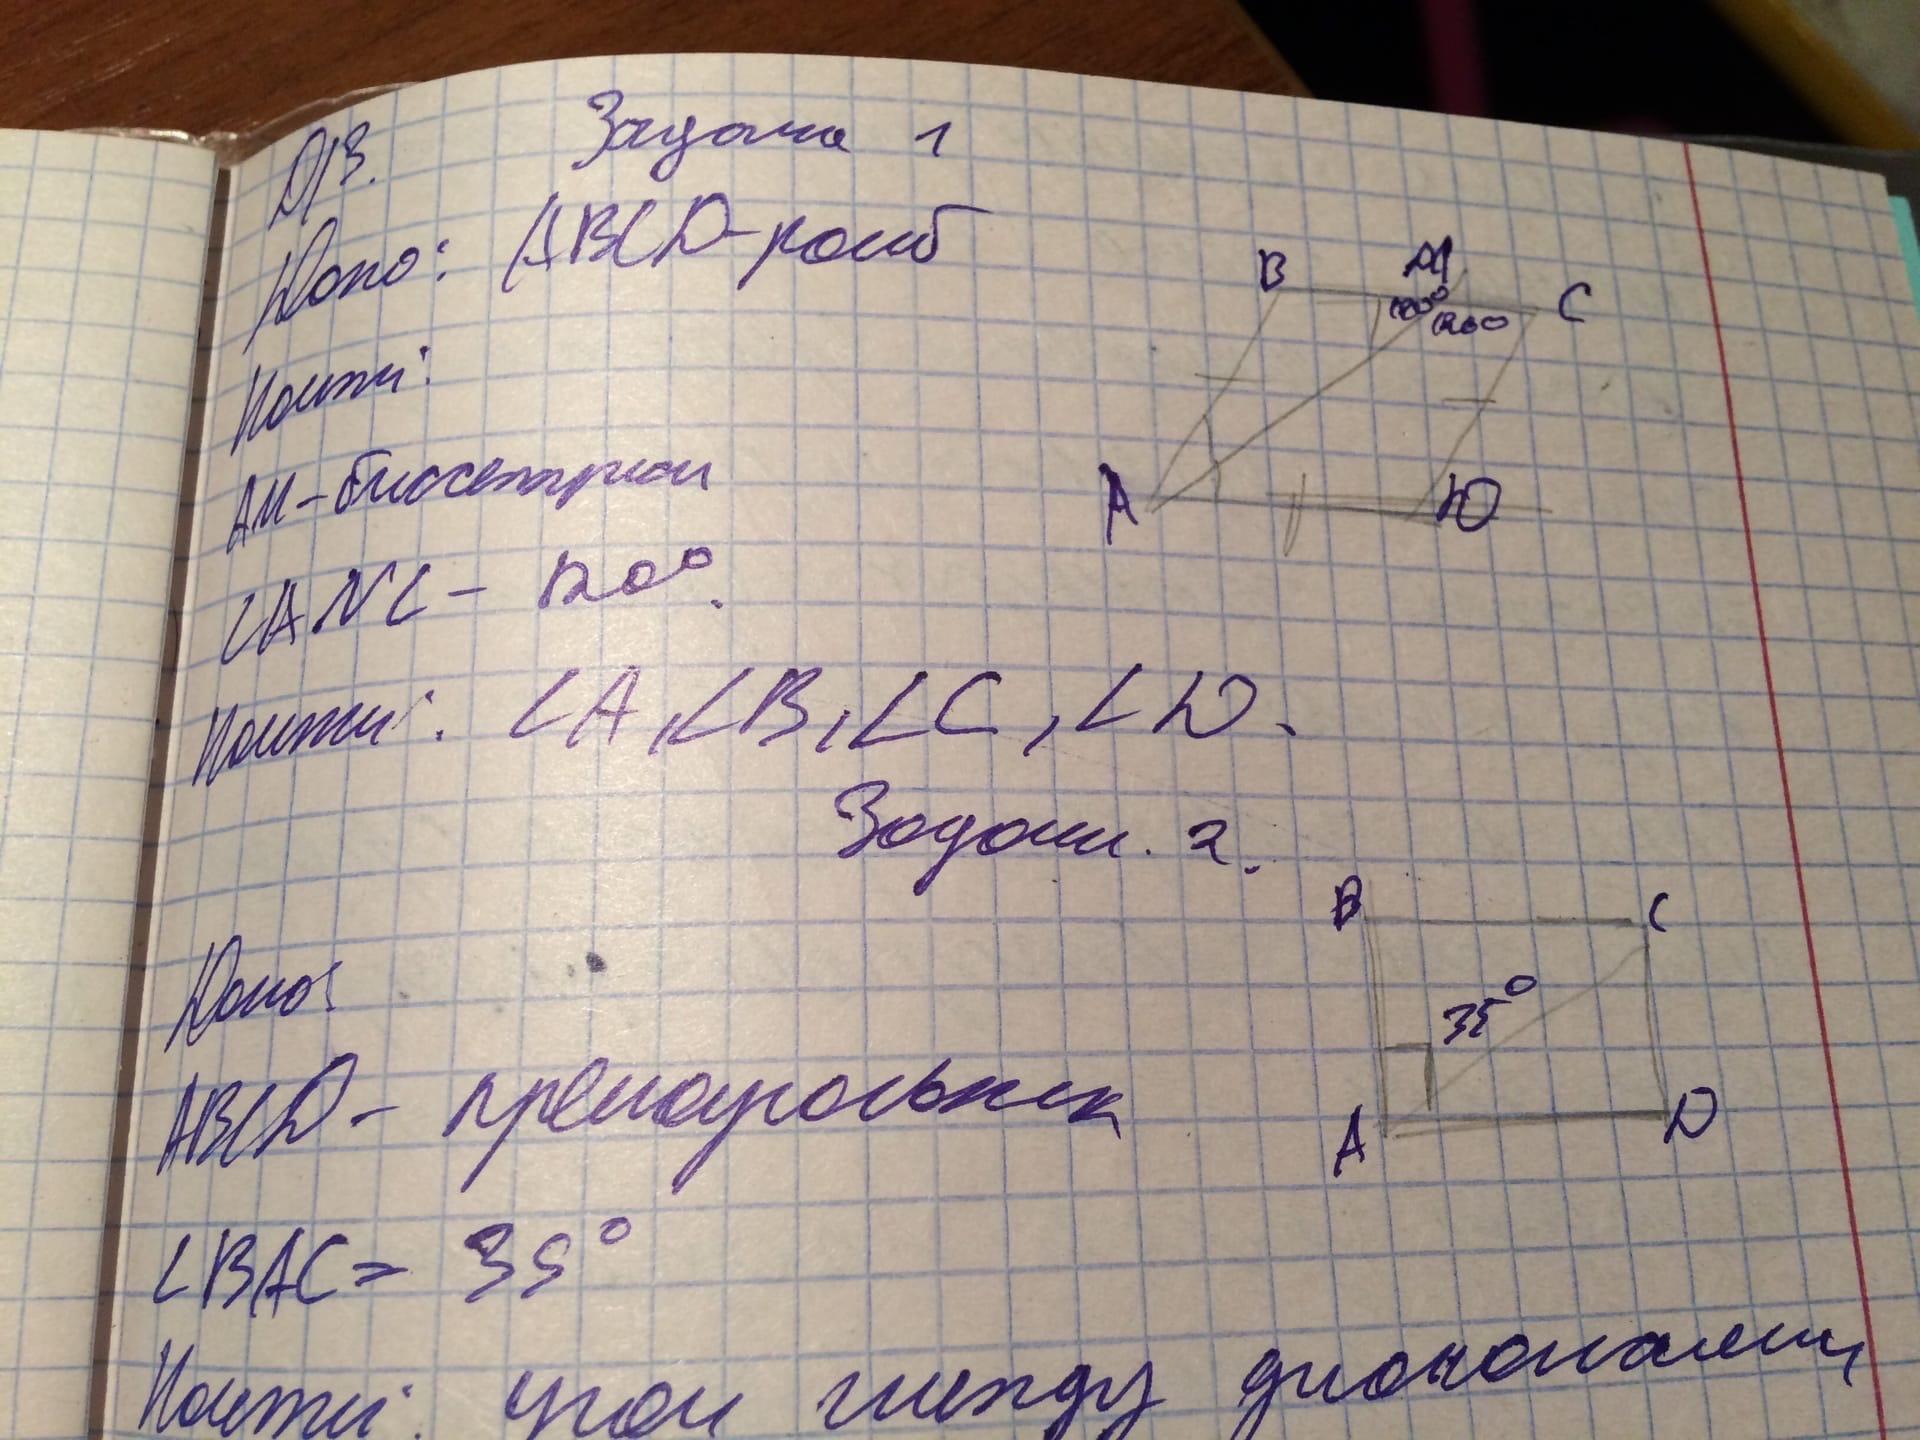 Д/З. Задача 1
Дано: ABCD-ромб
B M C
120°
120°
Найти:
AM-биссектриса
A D
∠AMC - 120°.
Найти: ∠A, ∠B, ∠C, ∠D.
Задача. 2.
B C
Дано:
35°
ABCD - прямоугольник
A D
∠BAC = 35°
Найти: угол между диагоналями